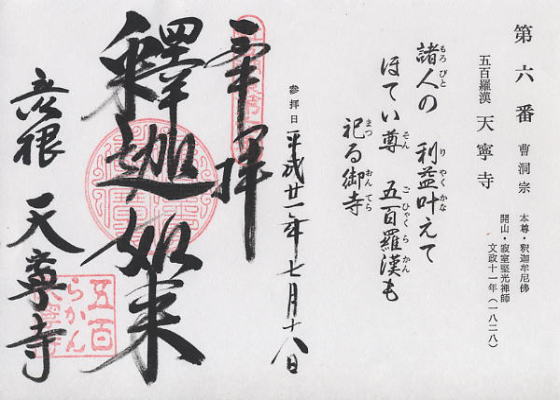 第六番 曹洞宗
五百羅漢 天寧寺
本尊・釈迦牟尼佛
開山・寂室堅光禅師
文政十一年（一八二八）
諸人の 利益叶えて
ほてい尊 五百羅漢も
祀る御寺
参拝日 平成廿一年七月十八日
奉拝
釋迦如来
彦根 天寧寺
五百
らかん
天寧寺